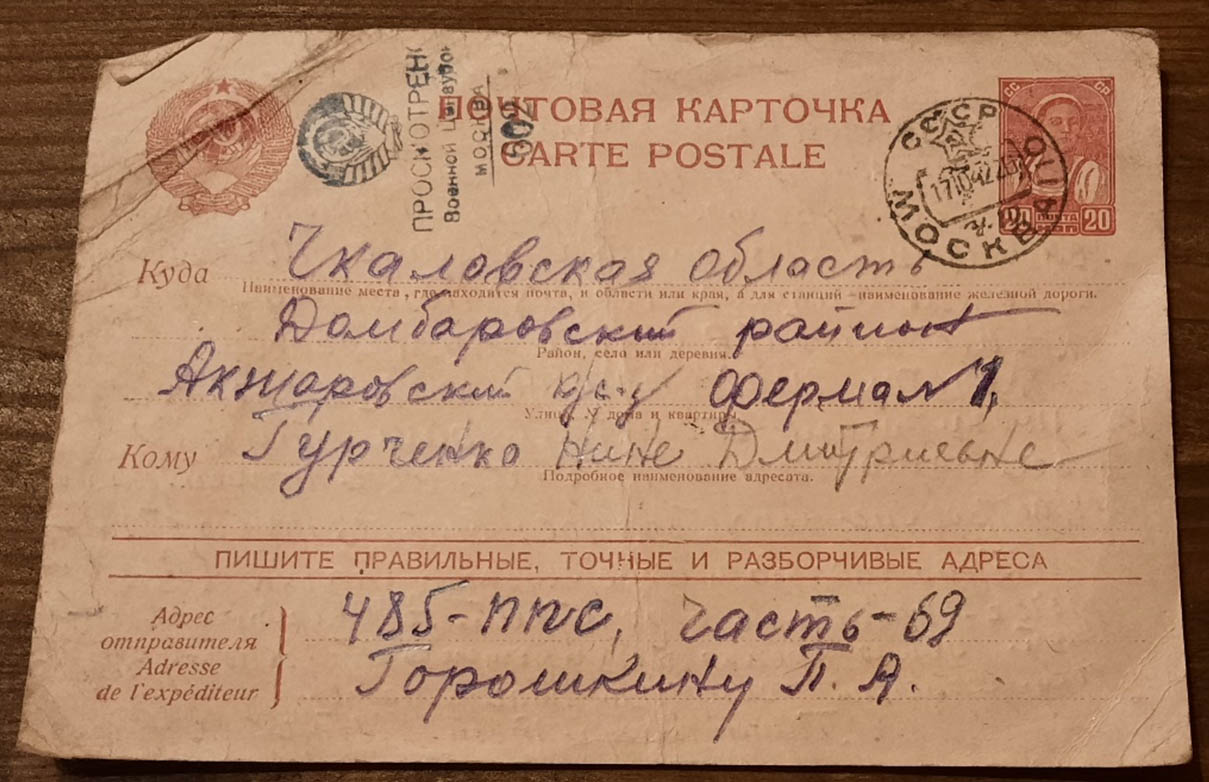 ПРОСМОТРЕНО
Военной Цензурой
МОСКВА
602
ПОЧТОВАЯ КАРТОЧКА
CARTE POSTALE
СССР
МОСКВА
17 10 42
20 ПОЧТА 20
Куда Чкаловская область
Наименование места, где находится почта, и области или края, а для станций—наименование железной дороги.
Домбаровский район
Район, село или деревня.
Акжаровский Ферма №1,
Улица, № дома и квартиры.
Кому Гурченко Нине Дмитриевне
Подробное наименование адресата.
ПИШИТЕ ПРАВИЛЬНЫЕ, ТОЧНЫЕ И РАЗБОРЧИВЫЕ АДРЕСА
Адрес
отправителя
Adresse
de l'expéditeur
485-ППС, часть-69
Горошкину П. А.